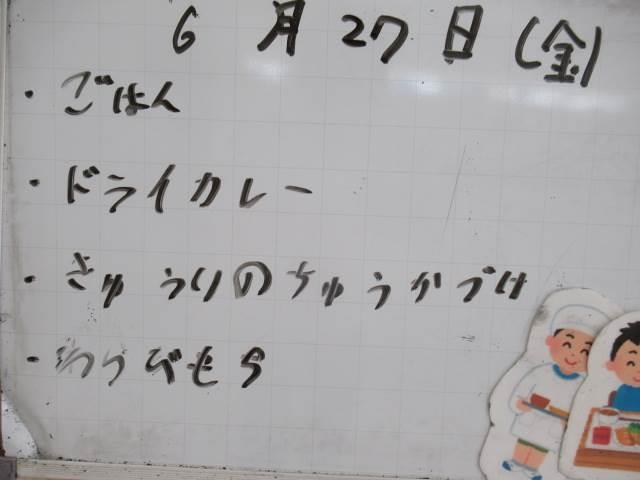 6月27日(金)
・ごはん
・ドライカレー
・きゅうりのちゅうかづけ
・わらびもち